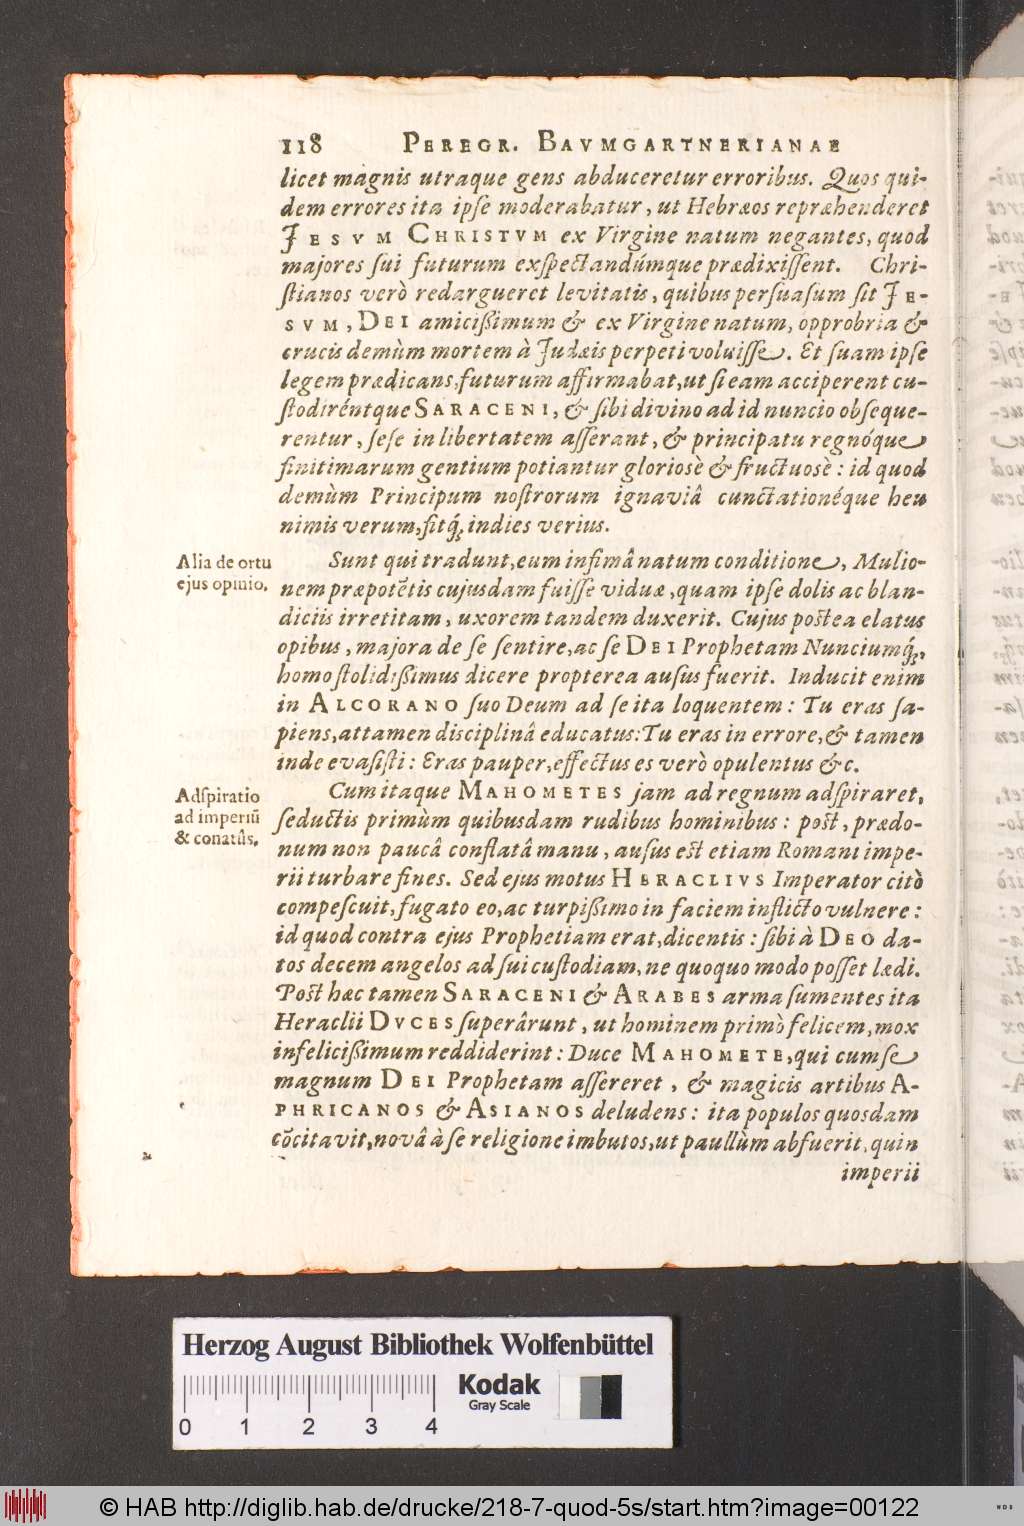 118 PEREGR. BAVMGARTNERIANAE
licet magnis utraque gens abduceretur erroribus. Quos qui-
dem errores ita ipſe moderabatur, ut Hebræos repræhenderet
JESVM CHRISTVM ex Virgine natum negantes, quod
majores ſui futurum exſpectandúmque prædixiſſent. Chri-
ſtianos verò redargueret levitatis, quibus perſuaſum ſit JE-
SVM, DEI amicißimum & ex Virgine natum, opprobria &
crucis demùm mortem à Judæis perpeti voluiſſe. Et ſuam ipſe
legem prædicans, futurum affirmabat, ut ſi eam acciperent cu-
ſtodiréntque SARACENI, & ſibi divino ad id nuncio obſeque-
rentur, ſeſe in libertatem aſſerant, & principatu regnóque
finitimarum gentium potiantur gloriosè & fructuosè: id quod
demùm Principum noſtrorum ignaviâ cunctationéque heu
nimis verum, fitq́; indies verius.
Alia de ortu
ejus opinio.
Sunt qui tradunt, eum infimâ natum conditione, Mulio-
nem præpotētis cujusdam fuiſſe viduæ, quam ipſe dolis ac blan-
diciis irretitam, uxorem tandem duxerit. Cujus poſtea elatus
opibus, majora de ſe ſentire, ac ſe DEI Prophetam Nunciumq́;,
homo ſtolidißimus dicere propterea auſus fuerit. Inducit enim
in ALCORANO ſuo Deum ad ſe ita loquentem: Tu eras ſa-
piens, attamen disciplinâ educatus: Tu eras in errore, & tamen
inde evaſiſti: Eras pauper, effectus es verò opulentus &c.
Adſpiratio
ad imperiū
& conatûs.
Cum itaque MAHOMETES jam ad regnum adſpiraret,
ſeductis primùm quibusdam rudibus hominibus: poſt, prædo-
num non paucâ conflatâ manu, auſus eſt etiam Romani impe-
rii turbare fines. Sed ejus motus HERACLIVS Imperator citò
compeſcuit, fugato eo, ac turpißimo in faciem inflicto vulnere:
id quod contra ejus Prophetiam erat, dicentis: ſibi à DEO da-
tos decem angelos ad ſui cuſtodiam, ne quoquo modo poſſet lædi.
Poſt hæc tamen SARACENI & ARABES arma ſumentes ita
Heraclii DVCES ſuperârunt, ut hominem primò felicem, mox
infelicißimum reddiderint: Duce MAHOMETE, qui cum ſe
magnum DEI Prophetam aſſereret, & magicis artibus A-
PHRICANOS & ASIANOS deludens: ita populos quosdam
cōcitavit, novâ à ſe religione imbutos, ut paullùm abfuerit, quin
imperii
Herzog August Bibliothek Wolfenbüttel
Kodak
Gray Scale
0 1 2 3 4
© HAB http://diglib.hab.de/drucke/218-7-quod-5s/start.htm?image=00122